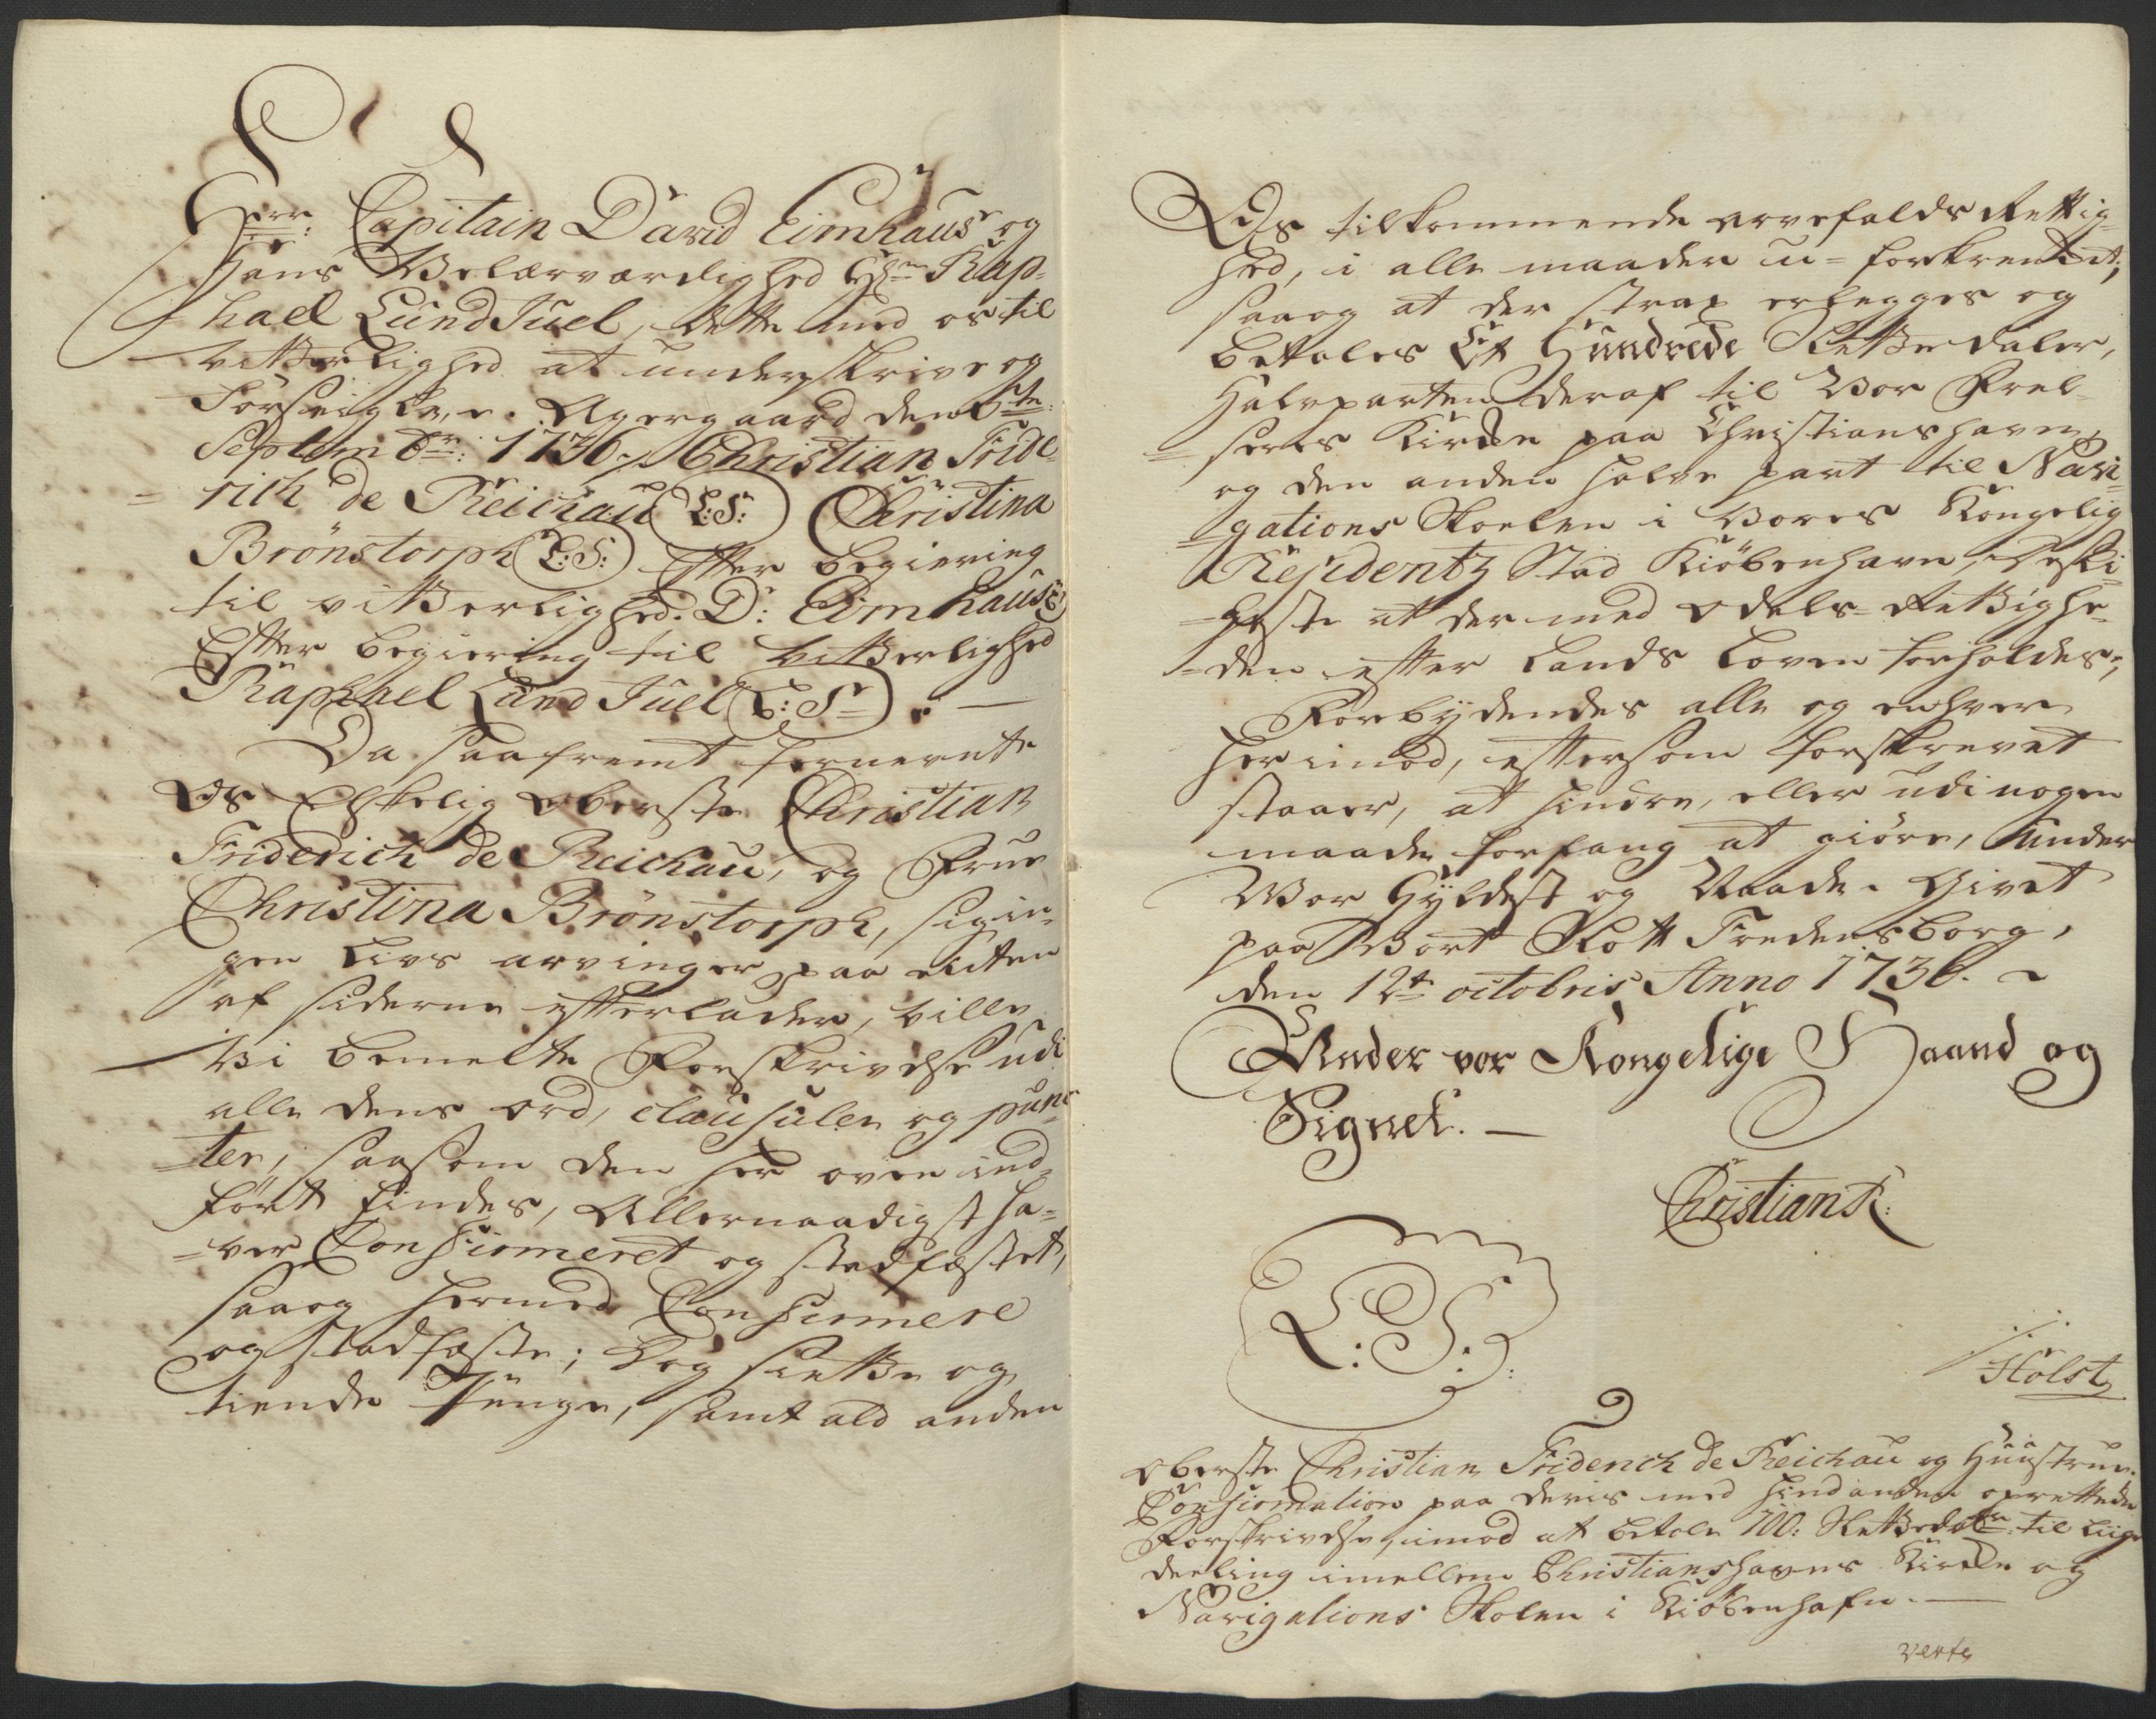 Herr: Capitain David Eimhaus og
Hans Velærværdighed Hr: Rap-
hael Lund Juel, dette med os til
vitterlighed at underskrive og
forseigle, r. Agergaard den 6te:
Septembr: 1736. Christian Fride-
=rich de Reichau (L:S:) Christina
Brönstorph (L:S:) Efter begiering
til vitterlighed. D: Eimhaus
Efter begiering til vitterlighed
Raphael Lund Juel (L:S:). —
Da saafremt fornevnte
Os Elskelig Oberste Christian
Friderich de Reichau, og Frue
Christina Brönstorph, sig in-
gen Livs arvinger paa
af siderne efterlader, ville
Vi bemelte Forskrivelse udi
alle dens ord, clausuler og punc-
=ter, saasom den her oven ind-
fört findes, Allernaadigst ha-
=ver Confirmeret og stadfæstet,
saa og hermed Confirmere
og stadfæste; Dog siette og
tiende Penge, samt ald anden
Os tilkommende arvefalds Rettig-
hed, i alle maader u-forkrenket;
saa og at der strax erlegges og
betales Et Hundrede Slettedaler,
Halvparten deraf til Vor Frel-
=seres Kircke paa Christianshavn,
og den anden halve part til Navi-
=gations Skoelen i Vores Kongelig
Residentz Stad Kiöbenhavn, Deslig-
=geste at der med Odels-Rettighe-
=den efter Lands Loven forholdes;
Forbydendes alle og enhver
her imod, eftersom forskrevet
staaer, at hindre, eller udi nogen
maade forfang at giöre, under
Vor Hyldest og Naade. Givet
paa Vort Slott Fredensborg,
den 12te octobris Anno 1736.
Under vor Kongelige Haand og
Signet. —
Christian R:
L:S:
Holst
Oberste Christian Friderich de Reichau og Huustrues
Confirmation paa deris med hinanden oprettede
Forskrivelse, imod at betale 100: Slettedlr: til liige
deeling imellem Christianshavns Kircke og
Navigations Skolen i Kiöbenhafn. —
verte